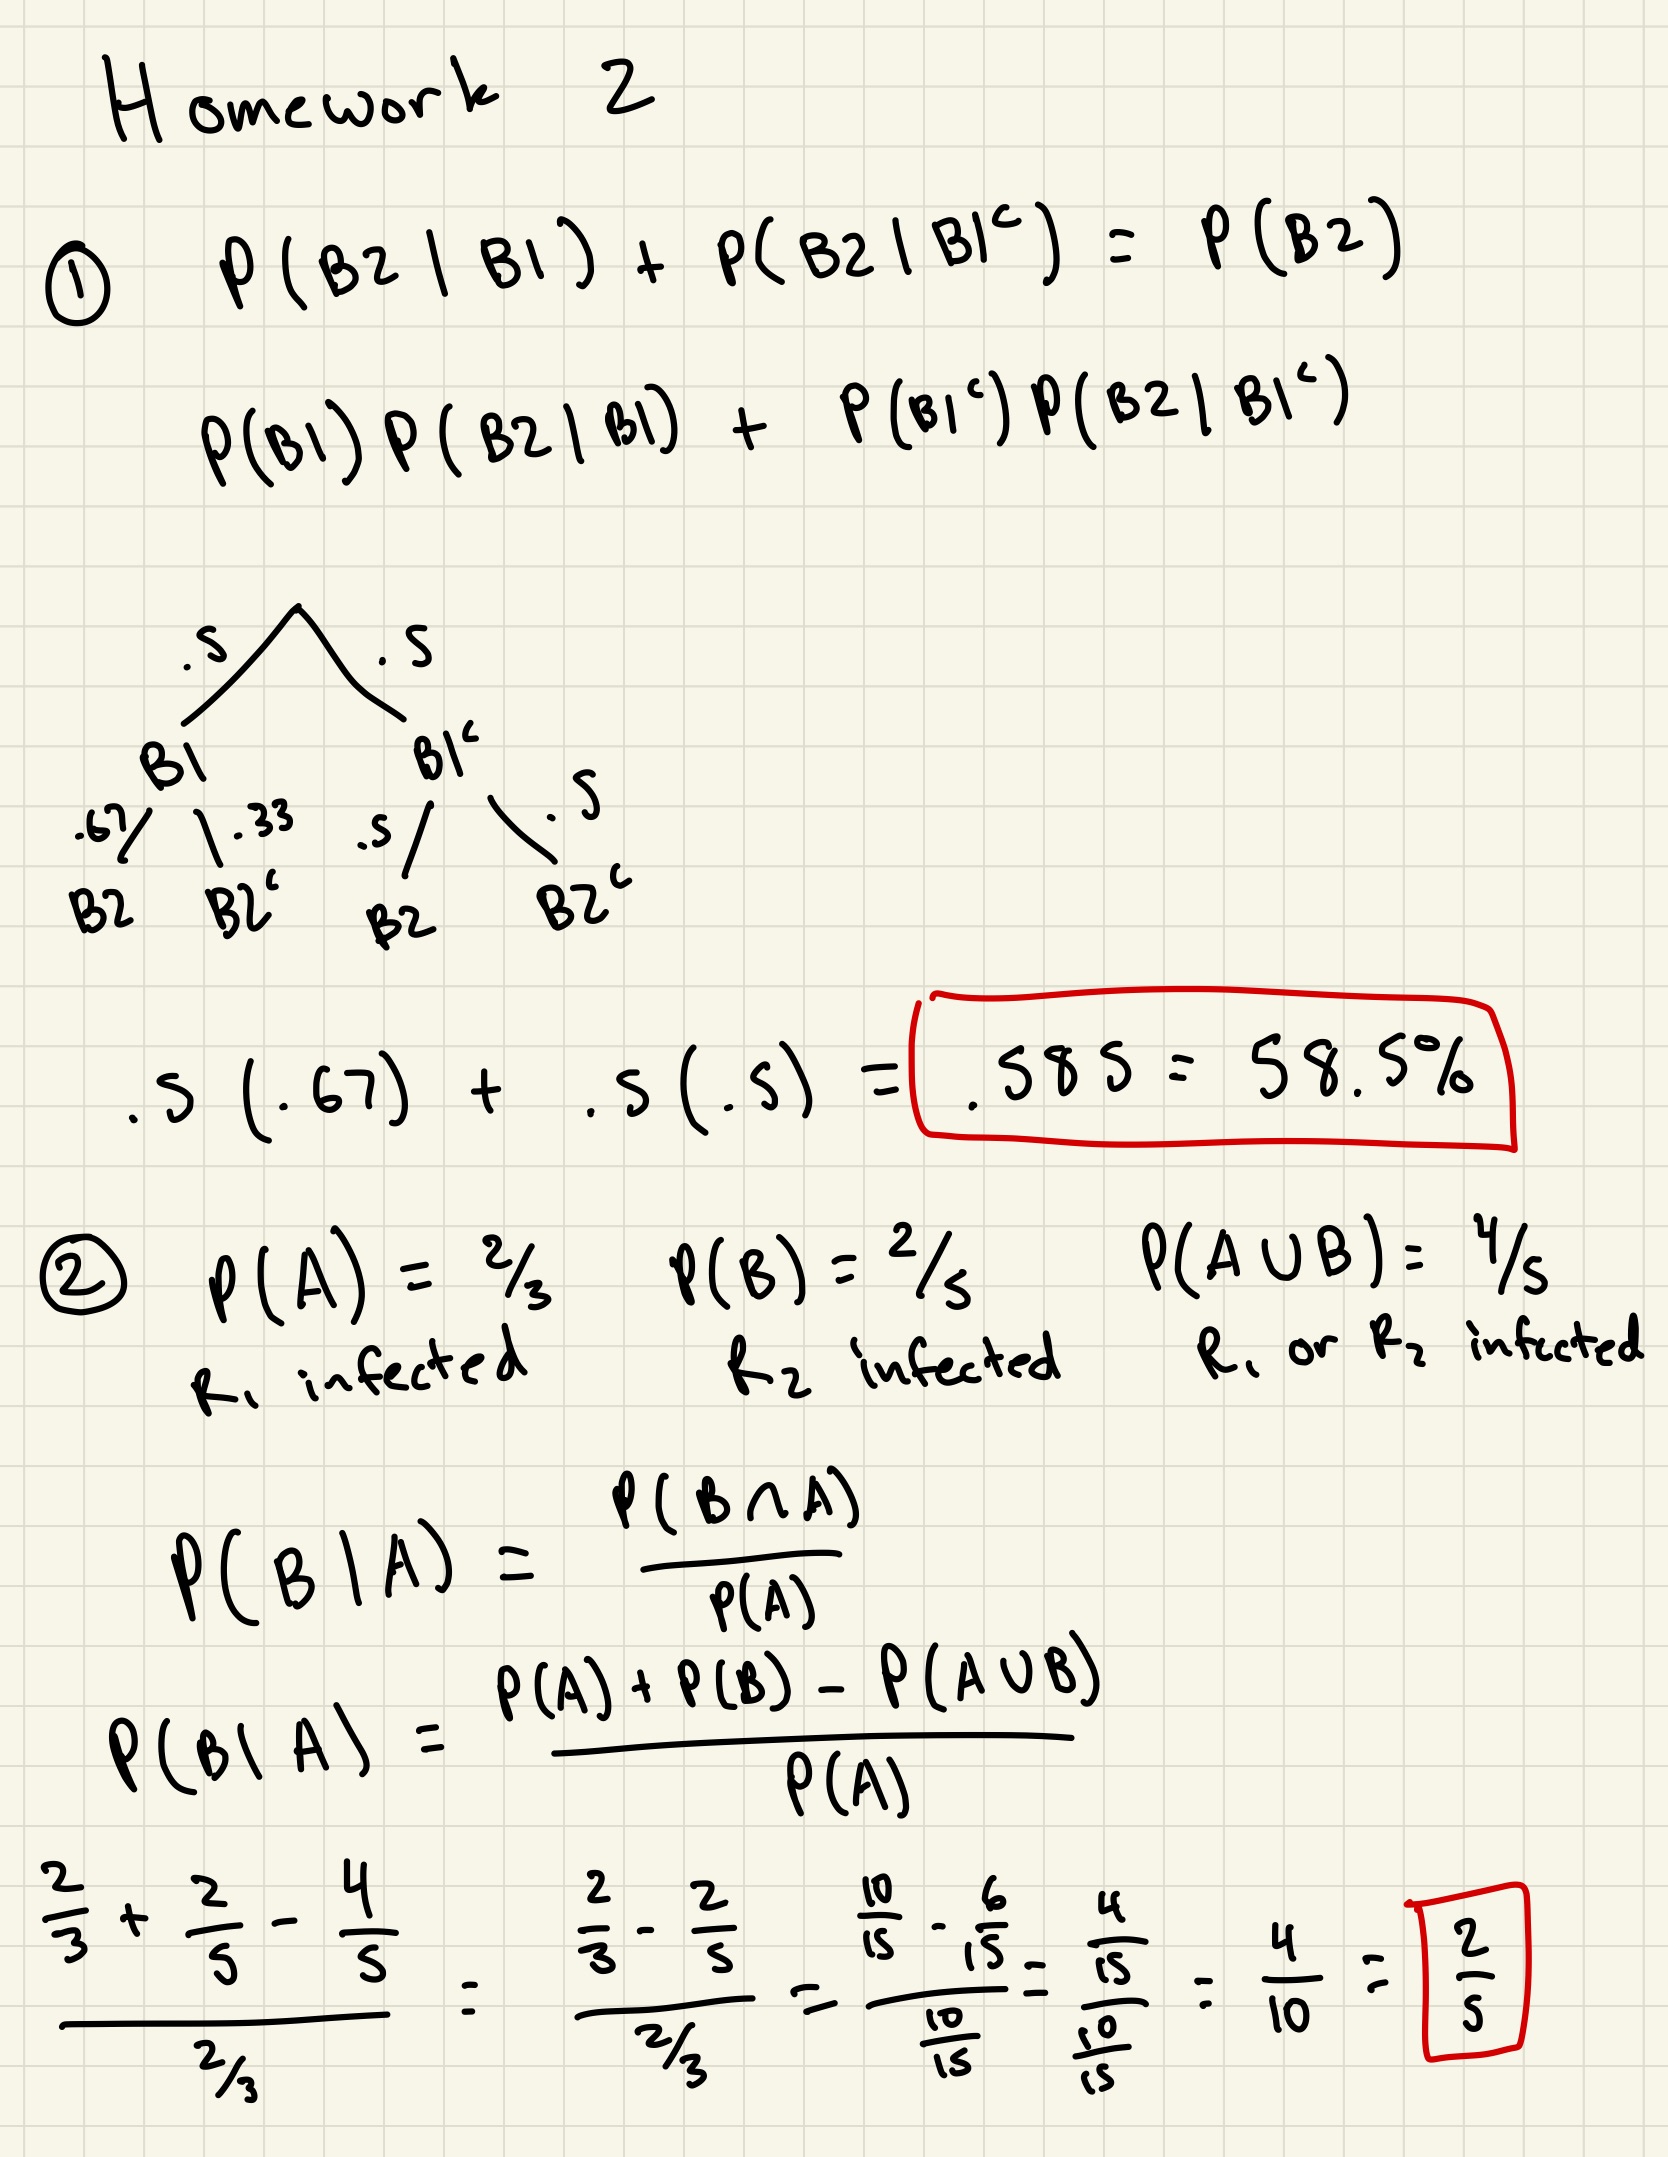 Homework 2
① P(B2 | B1) + P(B2 | B1ᶜ) = P(B2)
P(B1) P(B2 | B1) + P(B1ᶜ) P(B2 | B1ᶜ)
.5 .5
B1 B1ᶜ
.67 .33 .5 .5
B2 B2ᶜ B2 B2ᶜ
.5 (.67) + .5 (.5) = .585 = 58.5%
② P(A) = 2/3 P(B) = 2/5 P(A ∪ B) = 4/5
R₁ infected R₂ infected R₁ or R₂ infected
P(B | A) = P(B ∩ A) / P(A)
P(B | A) = P(A) + P(B) - P(A ∪ B) / P(A)
(2/3 + 2/5 - 4/5) / (2/3) = (2/3 - 2/5) / (2/3) = (10/15 - 6/15) / (10/15) = (4/15) / (10/15) = 4/10 = 2/5